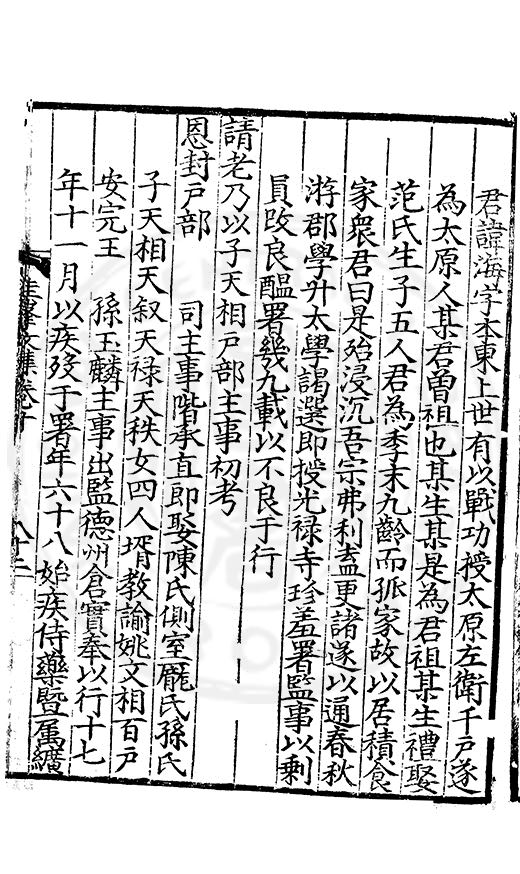 君諱海字本東上世有以戰功授太原左衛千戸遂
為太原人某君曾祖也某生某是為君祖某生禮娶
范氏生子五人君為季末九齡而孤家故以居積食
家衆君曰是殆浸沉吾宗弗利盍更諸遂以通春秋
游郡學升太學謁選即授光禄寺珍羞署監事以剩
員改良醖署幾九載以不良于行
請老乃以子天相戸部主事初考
恩封戸部　司主事階承直郎娶陳氏側室龎氏孫氏
子天相天叙天禄天秩女四人壻教諭姚文相百戸
安完王　孫玉麟主事出監德州倉實奉以行十七
年十一月以疾殁于署年六十八始疾侍藥暨屬纊
集卷
八十二